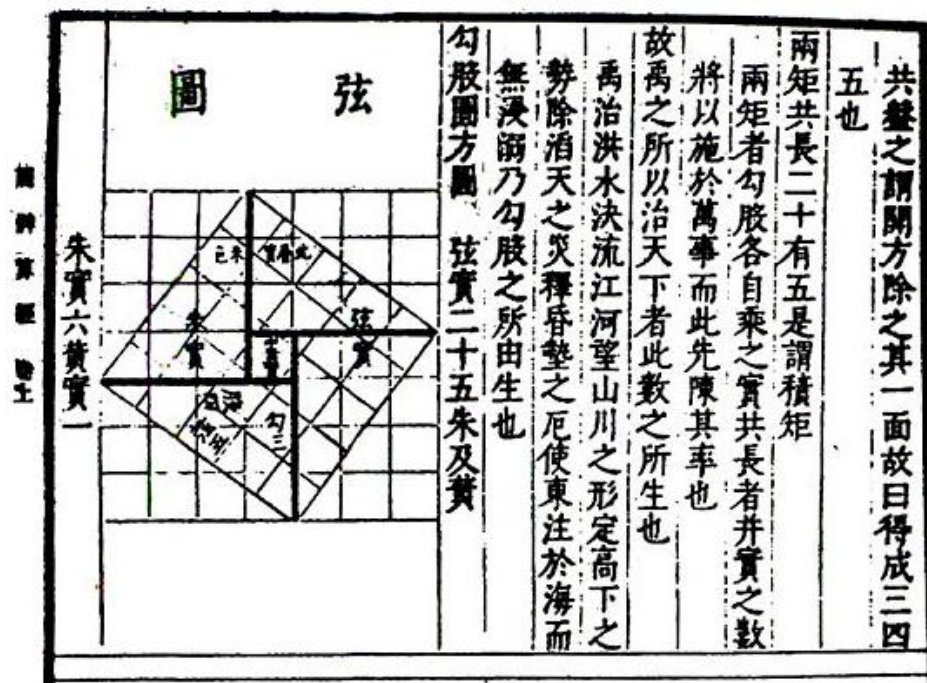 共盤之謂開方除之其一面故曰得成三四
五也
兩矩共長二十有五是謂積矩
兩矩者勾股各自乘之實共長者并實之數
將以施於萬事而此先陳其率也
故禹之所以治天下者此數之所生也
禹治洪水決流江河望山川之形定高下之
勢除滔天之災釋昏墊之厄使東注於海而
無浸溺乃勾股之所由生也
勾股圓方圖 弦實二十五朱及黄
弦圖
弦實
朱實
勾三
朱實六黄實一
周髀算經 卷上